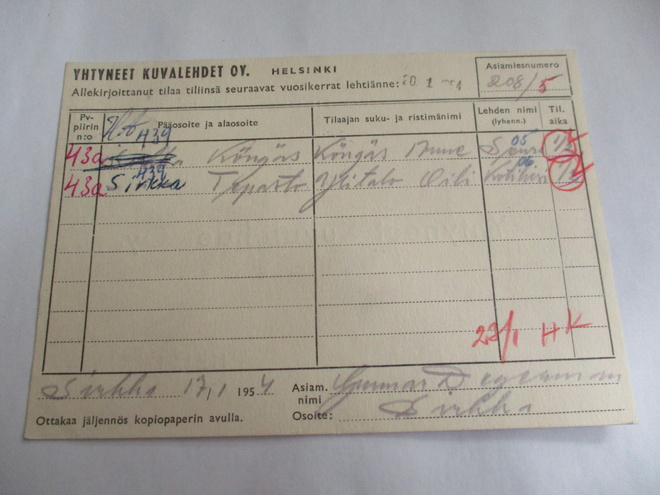 YHTYNEET KUVALEHDET OY. HELSINKI
Asiamiesnumero
208/5
Allekirjoittanut tilaa tiliinsä seuraavat vuosikerrat lehtiänne:
Pv-piirin n:o
Pääosoite ja alaosoite
Tilaajan suku- ja ristimänimi
Lehden nimi (lyhenn.)
Til. aika
H39
05
43a Köngäs Köngäs Seura 1/1
H39
06
43a Sirkka Tepasto Ylitalo Oili Kotiliesi 1/1
23/1 HK
Sirkka 17/1 1954
Asiam. nimi Gunnar
Ottakaa jäljennös kopiopaperin avulla.
Osoite: Sirkka